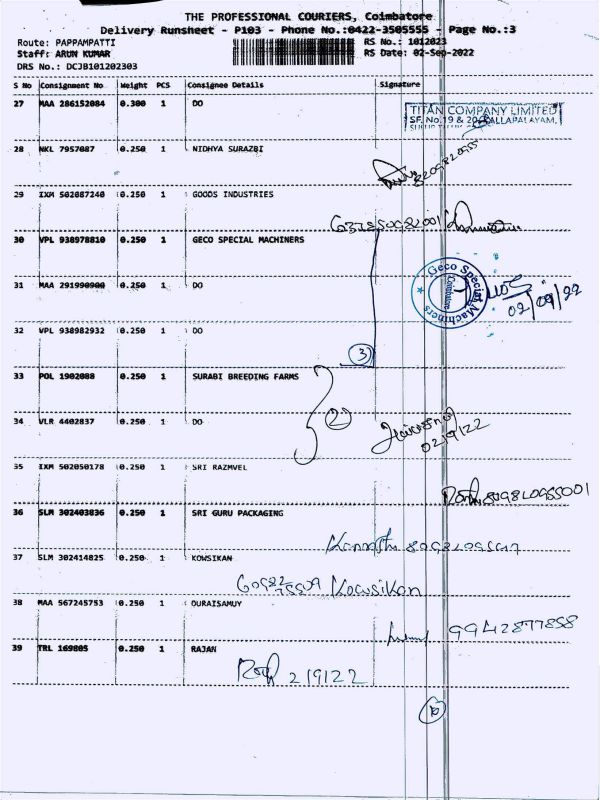 THE PROFESSIONAL COURIERS, Coimbatore
Delivery Runsheet - P103 - Phone No.:0422-3505555 - Page No.:3
Route: PAPPAMPATTI RS No.: 1012023
Staff: ARUN KUMAR RS Date: 02-Sep-2022
DRS No.: DCJB101202303
S No Consignment No Weight PCS Consignee Details Signature
27 MAA 286152084 0.300 1 DO
TITAN COMPANY LIMITED
SF. No.19 & 20, PALLAPALAYAM,
28 NKL 7957087 0.250 1 NIDHYA SURAZBI
29 IXM 502087240 0.250 1 GOODS INDUSTRIES
30 VPL 938978810 0.250 1 GECO SPECIAL MACHINERS
31 MAA 291990900 0.250 1 DO
Geco Special Machiners
Coimbatore
02/09/22
32 VPL 938982932 0.250 1 DO
3
33 POL 1902088 0.250 1 SURABI BREEDING FARMS
2
34 VLR 4402837 0.250 1 DO
02/9/22
35 IXM 502050178 0.250 1 SRI RAZMVEL
36 SLM 302403836 0.250 1 SRI GURU PACKAGING
37 SLM 302414825 0.250 1 KOWSIKAN
Kowsikan
38 MAA 567245753 0.250 1 DURAISAMUY
9942877858
39 TRL 169805 0.250 1 RAJAN
2/9/22